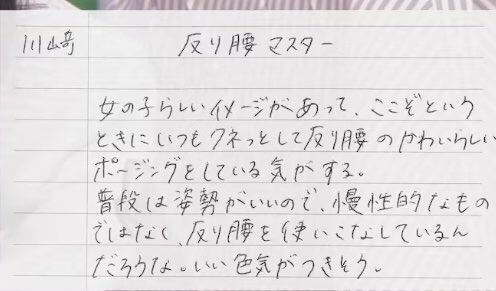 川崎 反り腰マスター
女の子らしいイメージがあって、ここぞという
ときにいつもクネっとして反り腰のやわいらしい
ポージングをしている気がする。
普段は姿勢がいいので、慢性的なもの
ではなく、反り腰を使いこなしているん
だろうな。いい色気がつきそう。